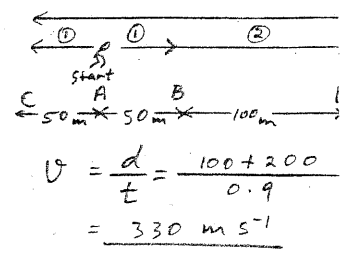 ① ① ②
Start
C A B
50m 50m 100m
v = d/t = 100 + 200 / 0.9
= 330 m s⁻¹